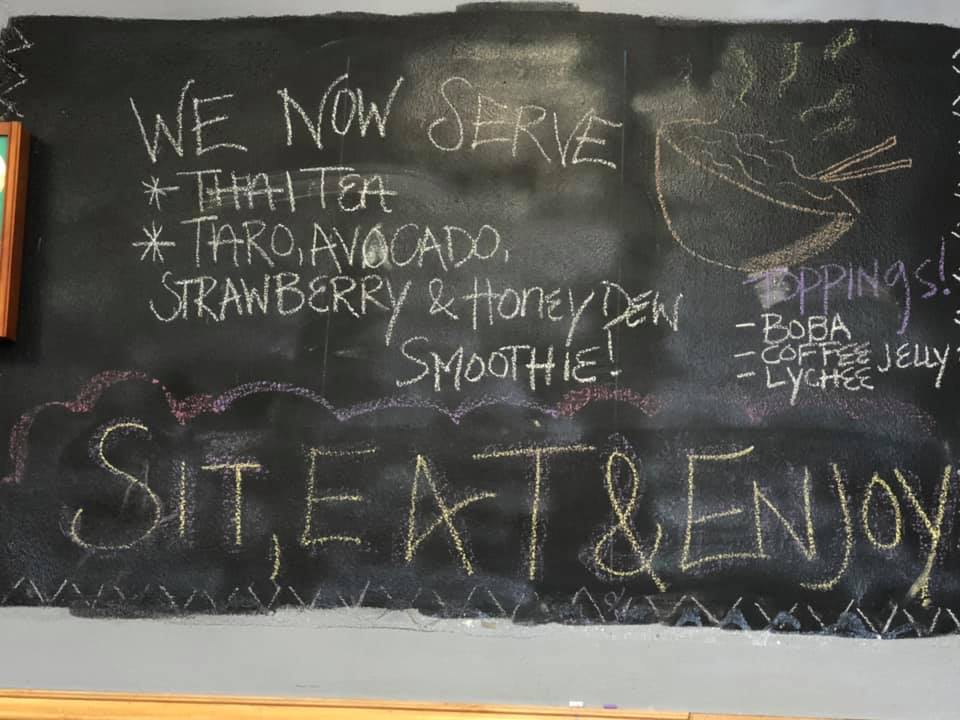 WE NOW SERVE
* THAI TEA
* TARO, AVOCADO,
STRAWBERRY & HONEYDEW
SMOOTHIE!
TOPPINGS!
- BOBA
- COFFEE JELLY
- LYCHEE
SIT, EAT & ENJOY